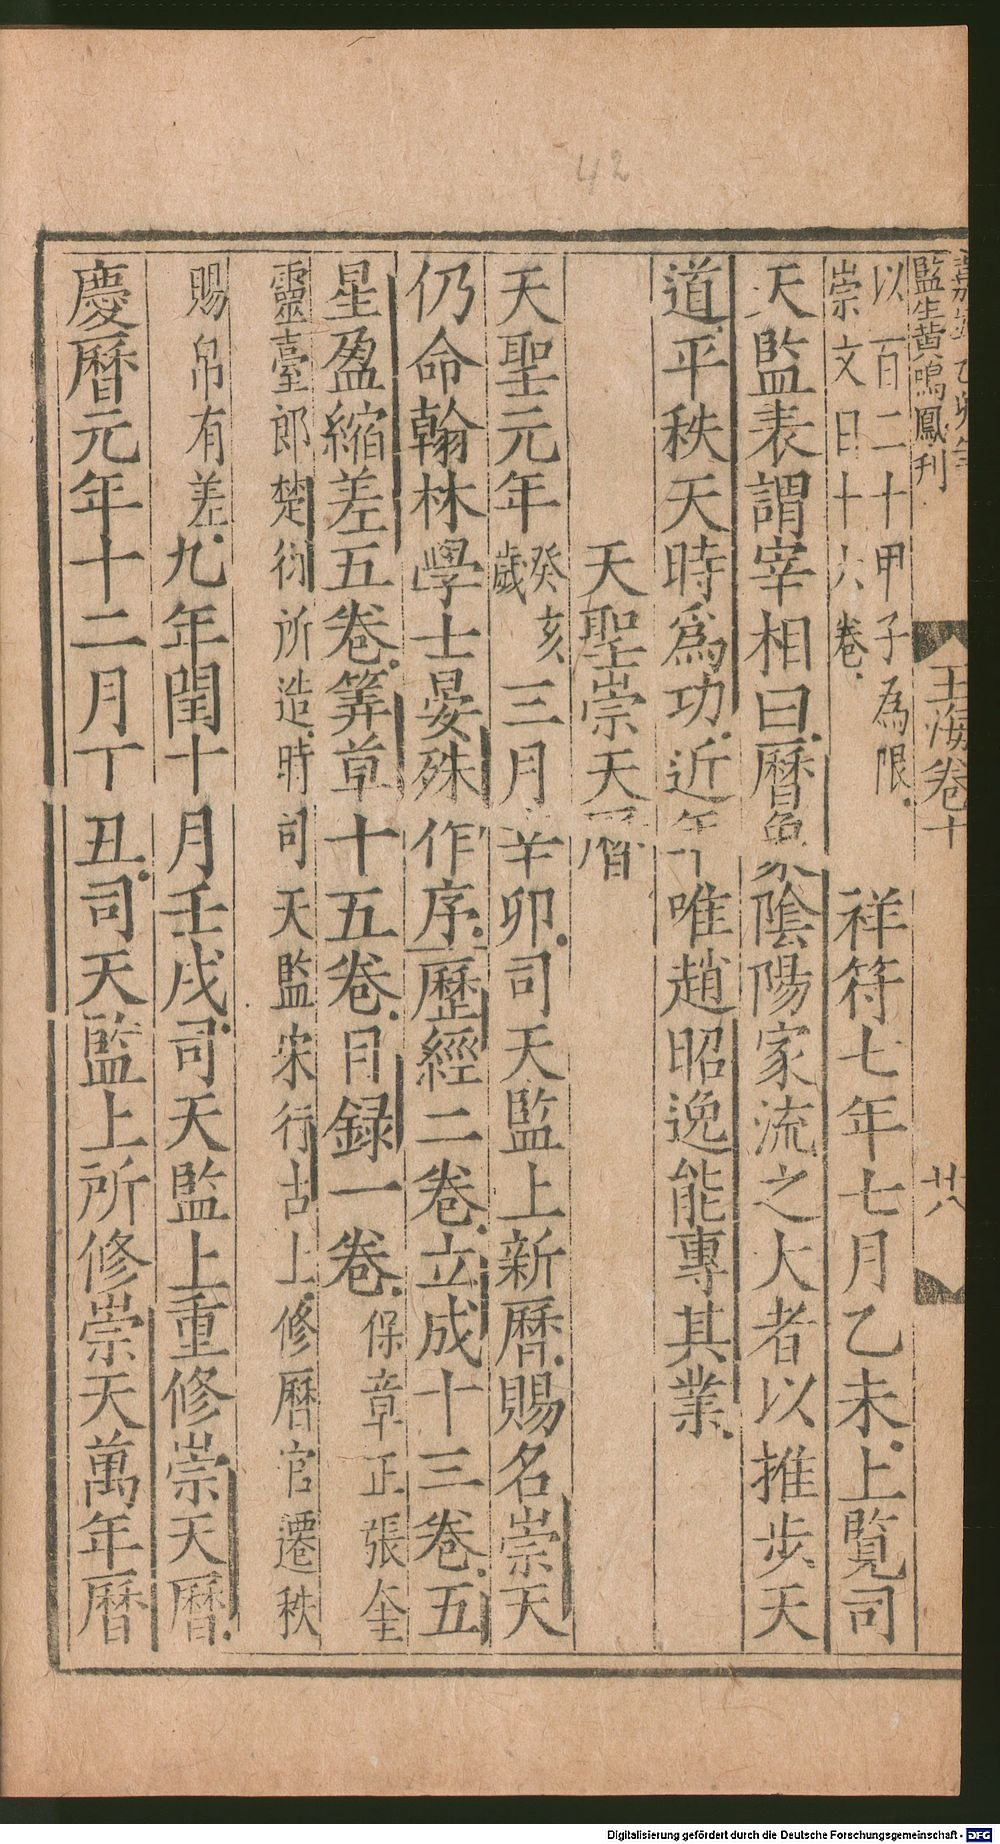 監生黄鳴鳳刊
玉海卷十
廿八
以百二十甲子為限
崇文目十六卷
祥符七年七月乙未上覧司
天監表謂宰相曰曆象陰陽家流之大者以推步天
道平秩天時爲功近年唯趙昭逸能專其業
天聖崇天曆
天聖元年癸亥歲三月辛卯司天監上新曆賜名崇天
仍命翰林學士晏殊作序歷經二卷立成十三卷五
星盈縮差五卷筭草十五卷目録一卷保章正張奎
靈臺郎楚衍所造時司天監宋行古上修曆官遷秩
賜帛有差九年閏十月壬戌司天監上重修崇天曆
慶曆元年十二月丁丑司天監上所修崇天萬年曆
42
Digitalisierung gefördert durch die Deutsche Forschungsgemeinschaft - DFG